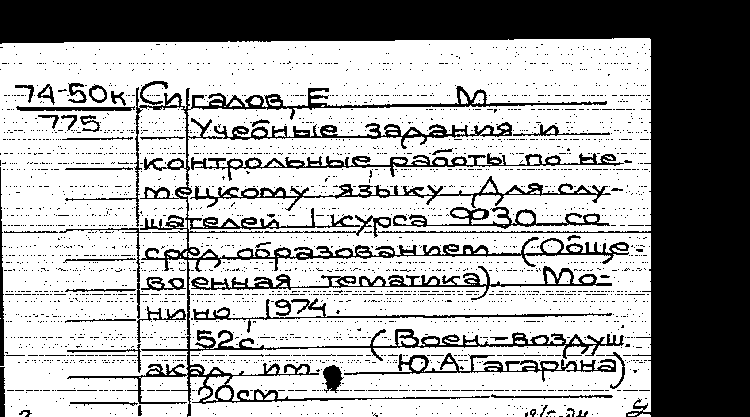 74-50к Сигалов, Е М.
775
Учебные задания и
контрольные работы по не-
мецкому языку. Для слу-
шателей 1 курса ФЗО со
сред. образованием (Обще-
военная тематика). Мо-
нино, 1974.
52с. (Воен.-воздуш.
акад. им. Ю.А.Гагарина).
20см.